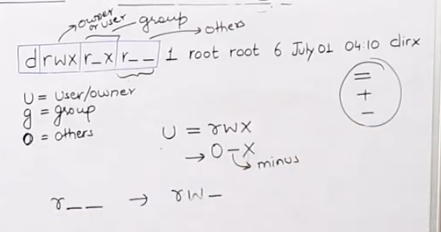 owner or user group others
drwx r_x r__ 1 root root 6 July 01 04:10 dirx
U = User/owner
g = group
O = others
=
+
-
U = rwx
→ O-x
minus
r__ → rw-